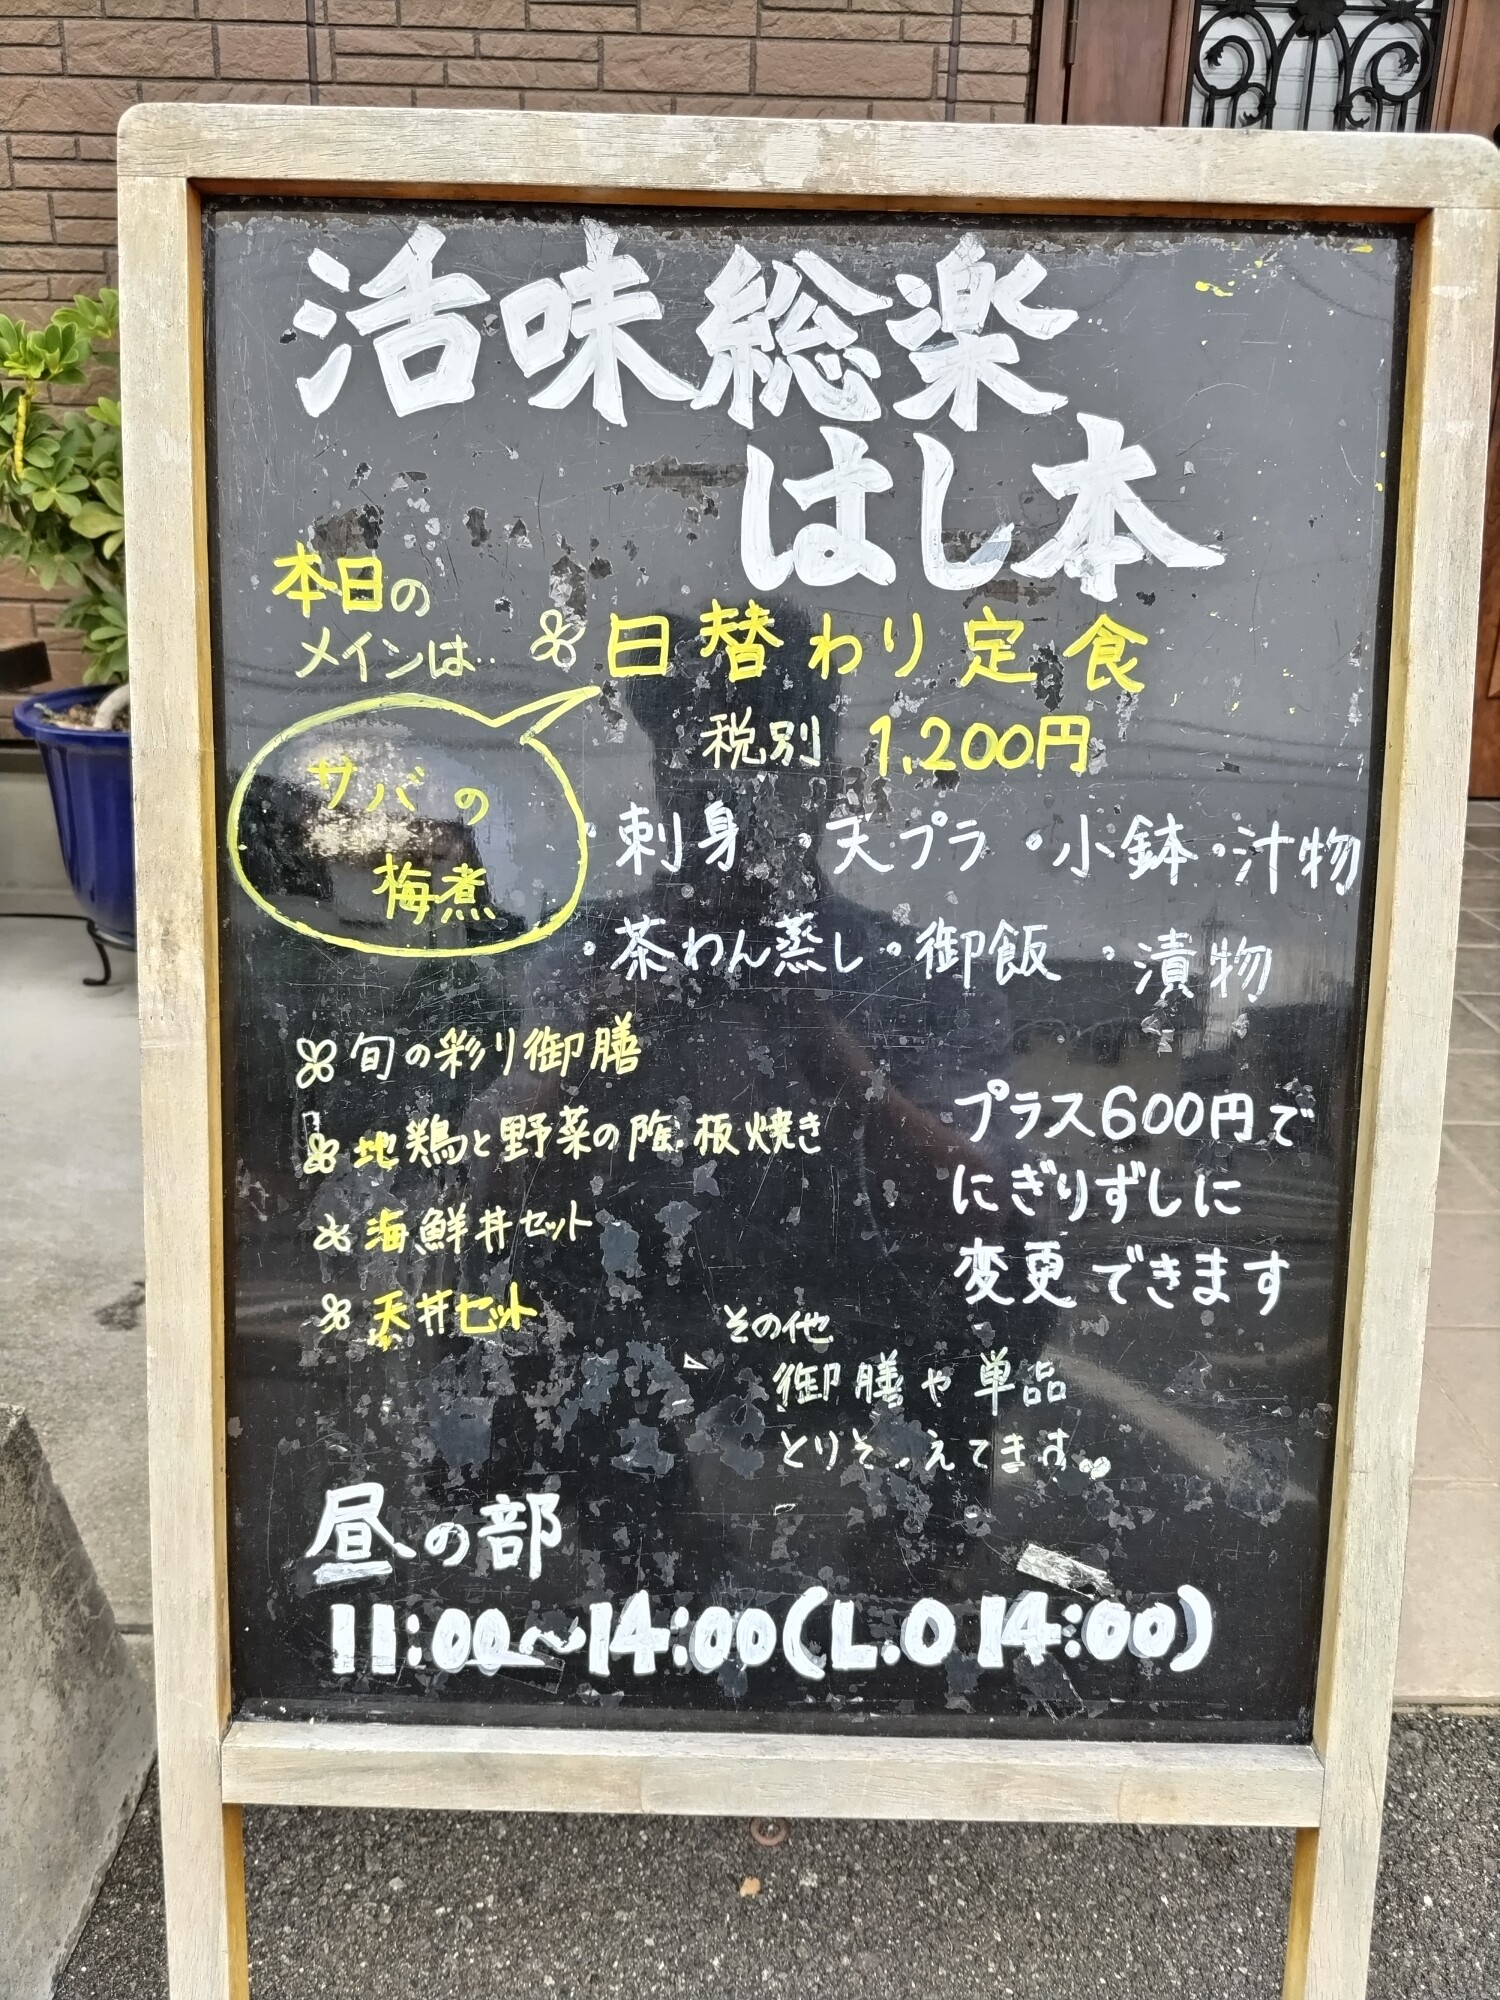 活味総楽
はし本
本日の
メインは
サバの
梅煮
日替わり定食
税別 1,200円
・刺身 ・天プラ ・小鉢 ・汁物
・茶わん蒸し ・御飯 ・漬物
旬の彩り御膳
地鶏と野菜の陶板焼き
海鮮丼セット
天丼セット
プラス600円で
にぎりずしに
変更できます
その他
御膳や単品
とりそろえてます。
昼の部
11:00〜14:00(L.O 14:00)